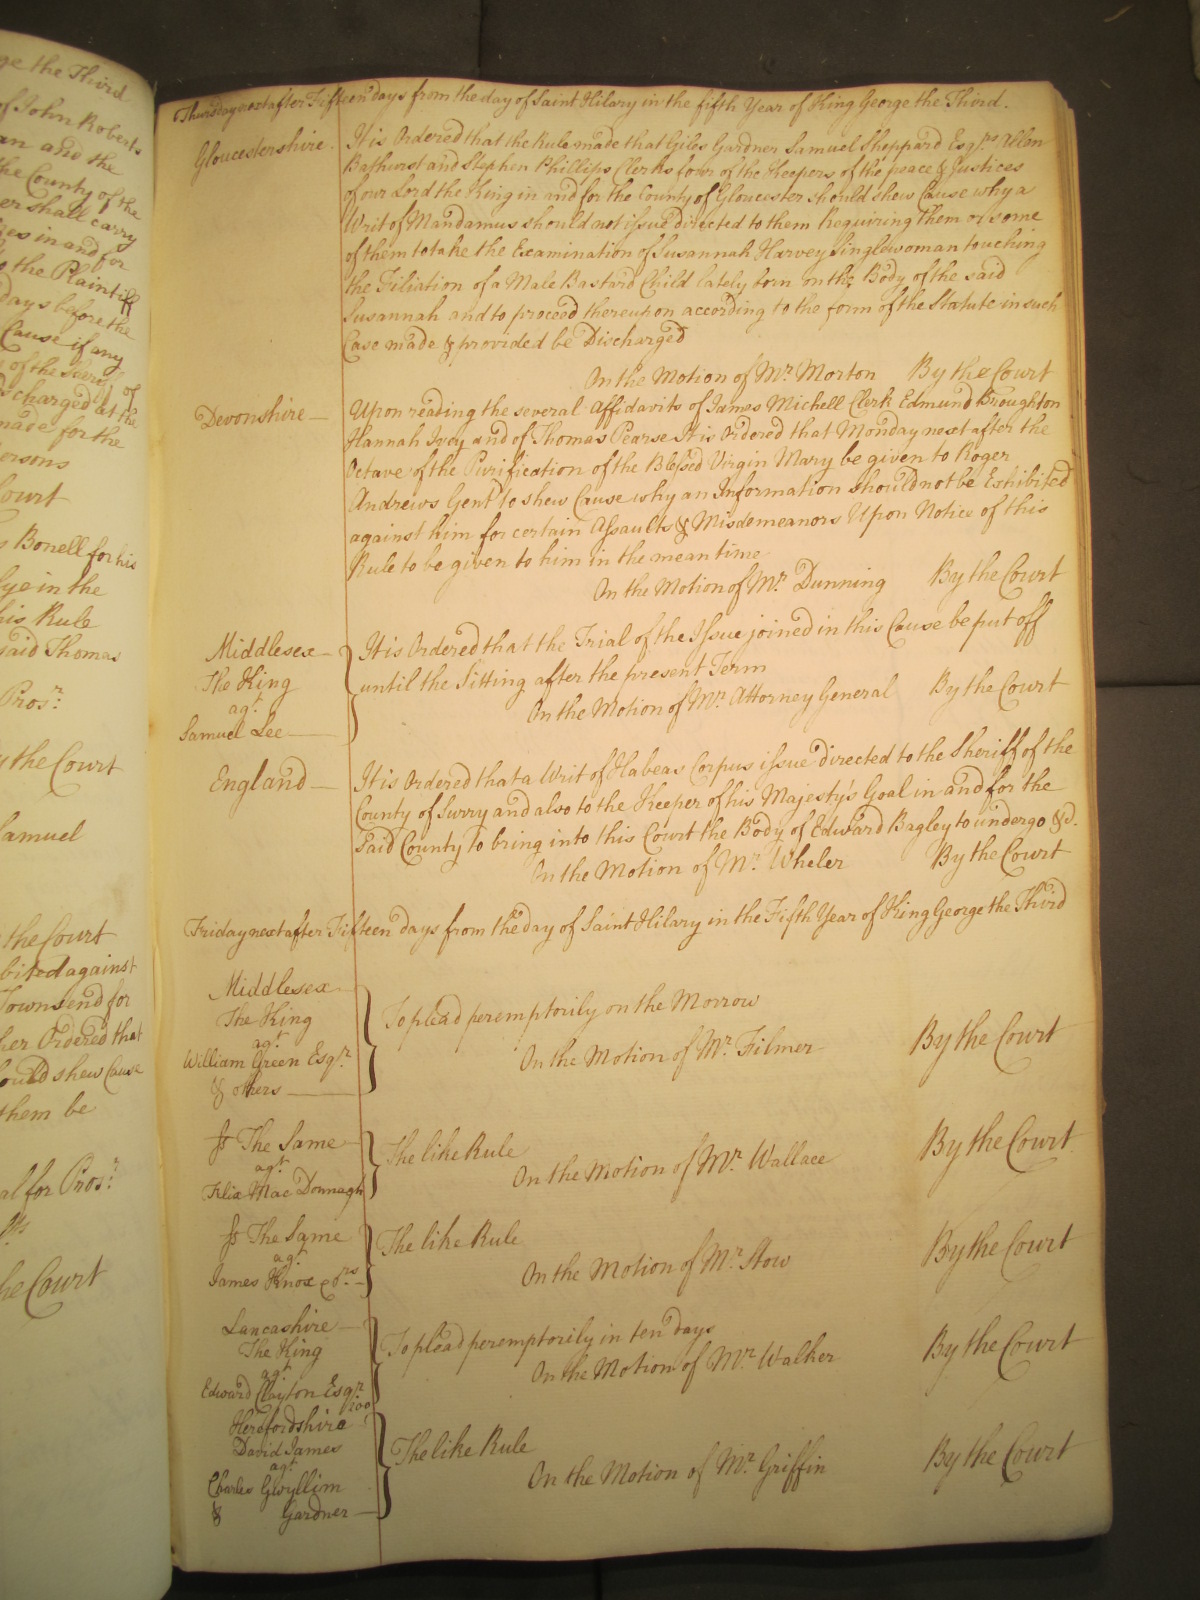 ge the Third
of John Roberts
an and the
the County of the
er shall carry
ies in and for
to the Plaintiff
days before the
Cause if any
of the several
discharged at the
made for the
ersons
Court
s Bonell for his
lye in the
his Rule
said Thomas
Prosr:
y the Court
Samuel
the Court
bited against
Townsend for
her Ordered that
should shew Cause
them be
al for Prosr:
he Court
Thursday next after Fifteen days from the day of Saint Hilary in the fifth Year of King George the Third.
Gloucestershire. It is Ordered that the Rule made that Giles Gardner Samuel Sheppard Esqrs. Allen
Bathurst and Stephen Phillips Clerks four of the Keepers of the peace & Justices
of our Lord the King in and for the County of Gloucester should shew Cause why a
Writ of Mandamus should not issue directed to them Requiring them or some
of them to take the Examination of Susannah Harvey Singlewoman touching
the Filiation of a Male Bastard Child lately born on the Body of the said
Susannah and to proceed thereupon according to the form of the Statute in such
Case made & provided be Discharged
On the Motion of Mr. Morton By the Court
Devonshire— Upon reading the several Affidavits of James Michell Clerk Edmund Broughton
Hannah Ivey and of Thomas Pearse It is Ordered that Monday next after the
Octave of the Purification of the Blessed Virgin Mary be given to Roger
Andrews Gent to shew Cause why an Information should not be Exhibited
against him for certain Assaults & Misdemeanors Upon Notice of this
Rule to be given to him in the mean time
On the Motion of Mr. Dunning By the Court
Middlesex— It is Ordered that the Trial of the Issue joined in this Cause be put off
The King until the Sitting after the present Term
agt. On the Motion of Mr. Attorney General By the Court
Samuel Lee—
England— It is Ordered that a Writ of Habeas Corpus issue directed to the Sheriff of the
County of Surry and also to the Keeper of his Majesty's Goal in and for the
Said County to bring into this Court the Body of Edward Bagley to undergo &c.
On the Motion of Mr. Wheler By the Court
Friday next after Fifteen days from the day of Saint Hilary in the Fifth Year of King George the Third
Middlesex—
The King To plead peremptorily on the Morrow
agt.
William Green Esqr. On the Motion of Mr. Filmer By the Court
& others—
Ss The Same The like Rule
agt. On the Motion of Mr. Wallace By the Court
Felix Mac Donnagh
Ss The Same The like Rule
agt.
James Knox & ors. On the Motion of Mr. Stow By the Court
Lancashire—
The King To plead peremptorily in ten days
agt. On the Motion of Mr. Walker By the Court
Edward Clayton Esqr
Herefordshire
David James The like Rule
agt.
Charles Gwyllim On the Motion of Mr. Griffin By the Court
& Gardner—